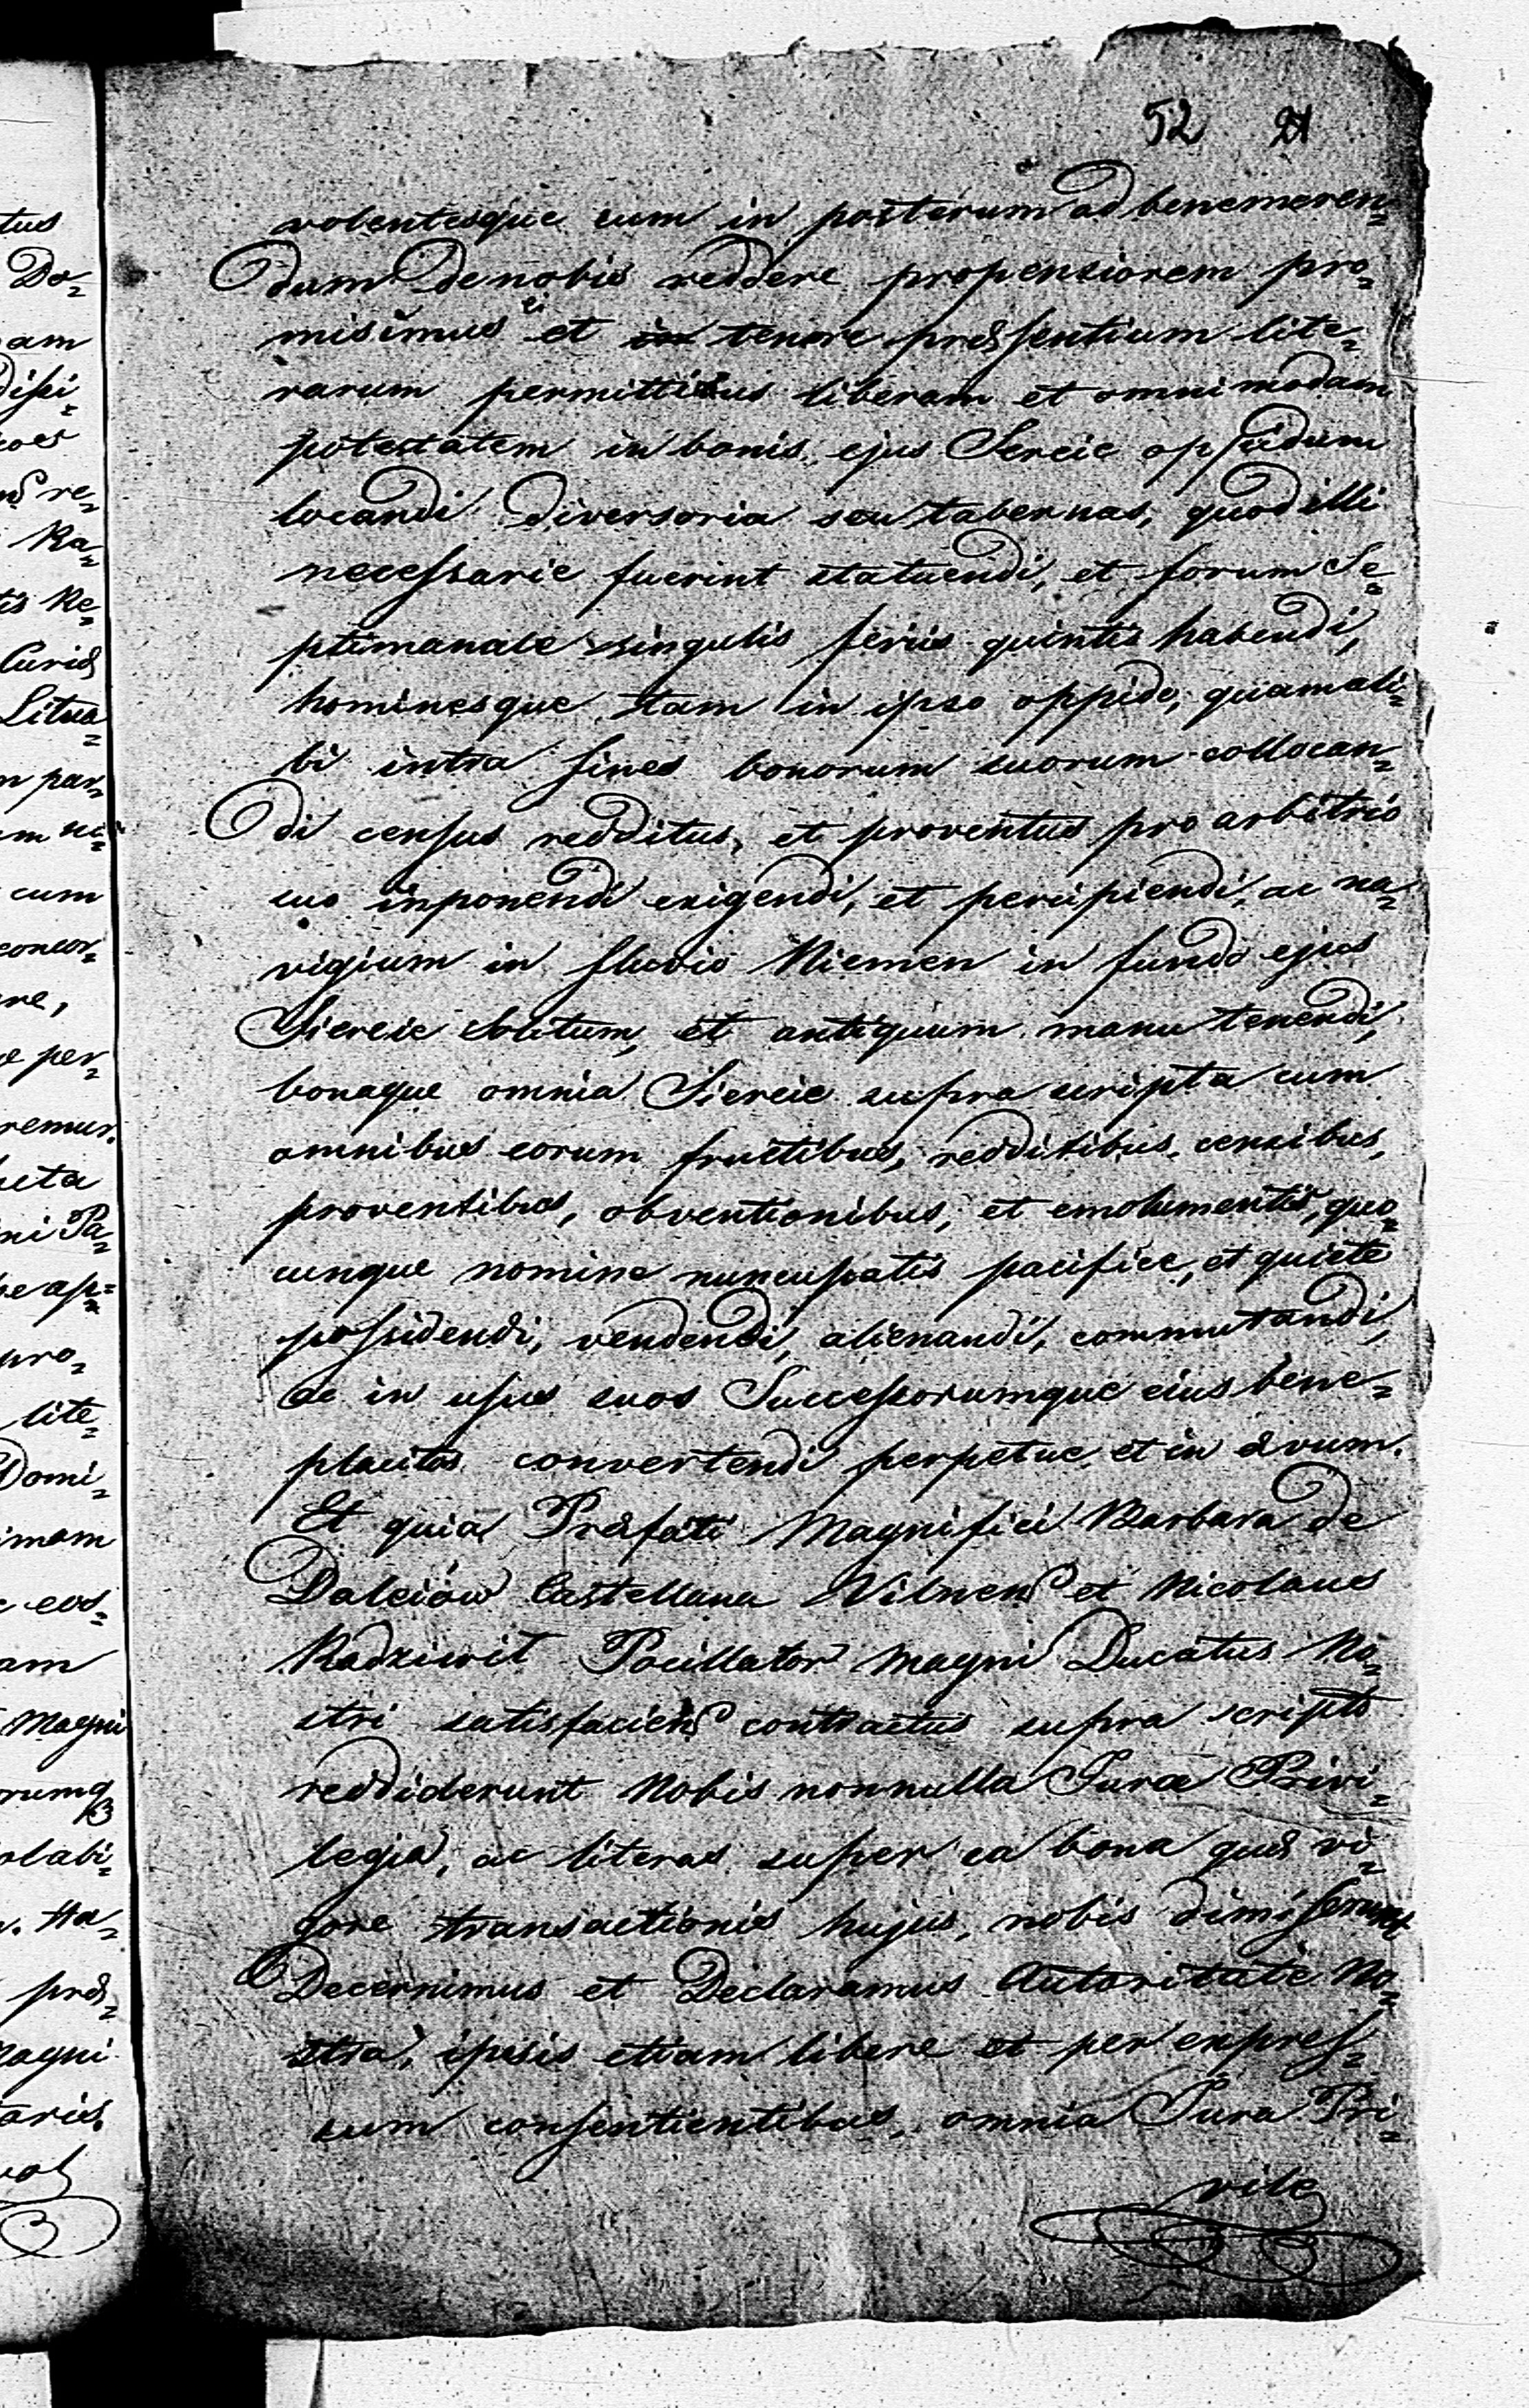 52 21
volentesque eum in posterum ad benemeren=
dum de nobis reddere propensiorem pro=
misimus ei et tenore præsentium lite=
rarum permittimus liberam et omnimodam
potestatem in bonis, ejus Sereie oppidum
locandi diversoria seu tabernas, quod illi
necessarie fuerint statuendi, et forum Se=
ptimanale singulis feriis quintis habendi,
hominesque tam in ipso oppido, quam ali=
bi intra fines bonorum suorum collocan=
di census redditus, et proventus pro arbitrio
suo inponendi exigendi, et percipiendi, ac na=
vigium in fluvio Niemen in fundo ejus
Siereie solitum, et antiquum manu tenendi,
bonaque omnia Siereie supra scripta cum
omnibus eorum fructibus, redditibus, censibus,
proventibus, obventionibus, et emolumentis, quo=
cunque nomine nuncupatis pacifice, et quiete
possidendi, vendendi, alienandi, commutandi,
ac in usus suos Successorumque eius bene=
placitos convertendi perpetue et in ævum.
Et quia Præfati Magnifici Barbara de
Castellana Vilnens et Nicolaus
Radziwił Pocillator Magni Ducatus No=
stri satisfaciens contractus supra scripto
reddiderunt Nobis nonnulla Jura Privi=
legia, ac literas super ea bona quæ vi=
gore transactionis hujus, nobis dimiserunt
Decernimus et Declaramus Autoritate No=
stra, ipsis etiam libere et per expres=
sum consentientibus, omnia Jura Pri=
vile
tus
Do=
am
re=
Ra=
tis Re=
Curiæ
Litua=
n par=
cum
ne,
per=
remur.
ni Pa=
pro=
lite=
Domi=
imam
eos=
am
Magni
olabi=
præ=
agni